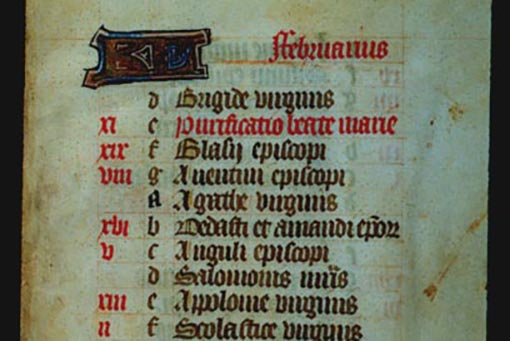 KL ffebruarius
d Brigide virginis
xi e Purificatio beate marie
xix f Blasij episcopi
viii g Auentini episcopi
A Agathe virginis
xvi b Vedasti et amandi epõrz
v c Auguli episcopi
d Salomonis mr̃is
xiii e Appolonie virginis
ii f Scolastice virginis